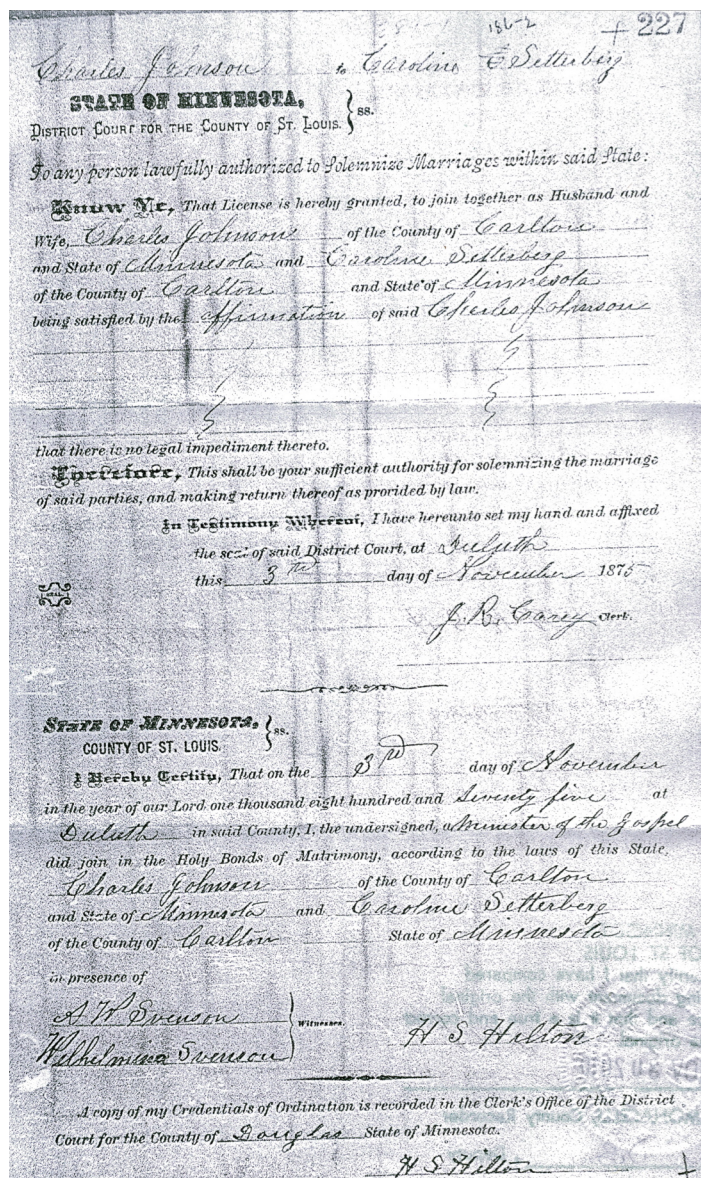 186-2 + 227
Charles Johnson to Caroline C Setterberg
STATE OF MINNESOTA,
DISTRICT COURT FOR THE COUNTY OF ST. LOUIS. } ss.
To any person lawfully authorized to Solemnize Marriages within said State:
Know Ye, That License is hereby granted, to join together as Husband and
Wife, Charles Johnson of the County of Carlton
and State of Minnesota and Caroline Setterberg
of the County of Carlton and State of Minnesota
being satisfied by the affirmation of said Charles Johnson
that there is no legal impediment thereto.
Therefore, This shall be your sufficient authority for solemnizing the marriage
of said parties, and making return thereof as provided by law.
In Testimony Whereof, I have hereunto set my hand and affixed
the seal of said District Court, at Duluth
this 3rd day of November 1875
SEAL
J. R. Carey Clerk.
STATE OF MINNESOTA,
COUNTY OF ST. LOUIS. } ss.
I Hereby Certify, That on the 3rd day of November
in the year of our Lord one thousand eight hundred and Seventy five at
Duluth in said County, I, the undersigned, a Minister of the Gospel
did join in the Holy Bonds of Matrimony, according to the laws of this State,
Charles Johnson of the County of Carlton
and State of Minnesota and Caroline Setterberg
of the County of Carlton State of Minnesota
in presence of
A W Svenson
Wilhelmina Svenson } Witnesses. H S Hilton
A copy of my Credentials of Ordination is recorded in the Clerk's Office of the District
Court for the County of Douglas State of Minnesota.
H S Hilton +